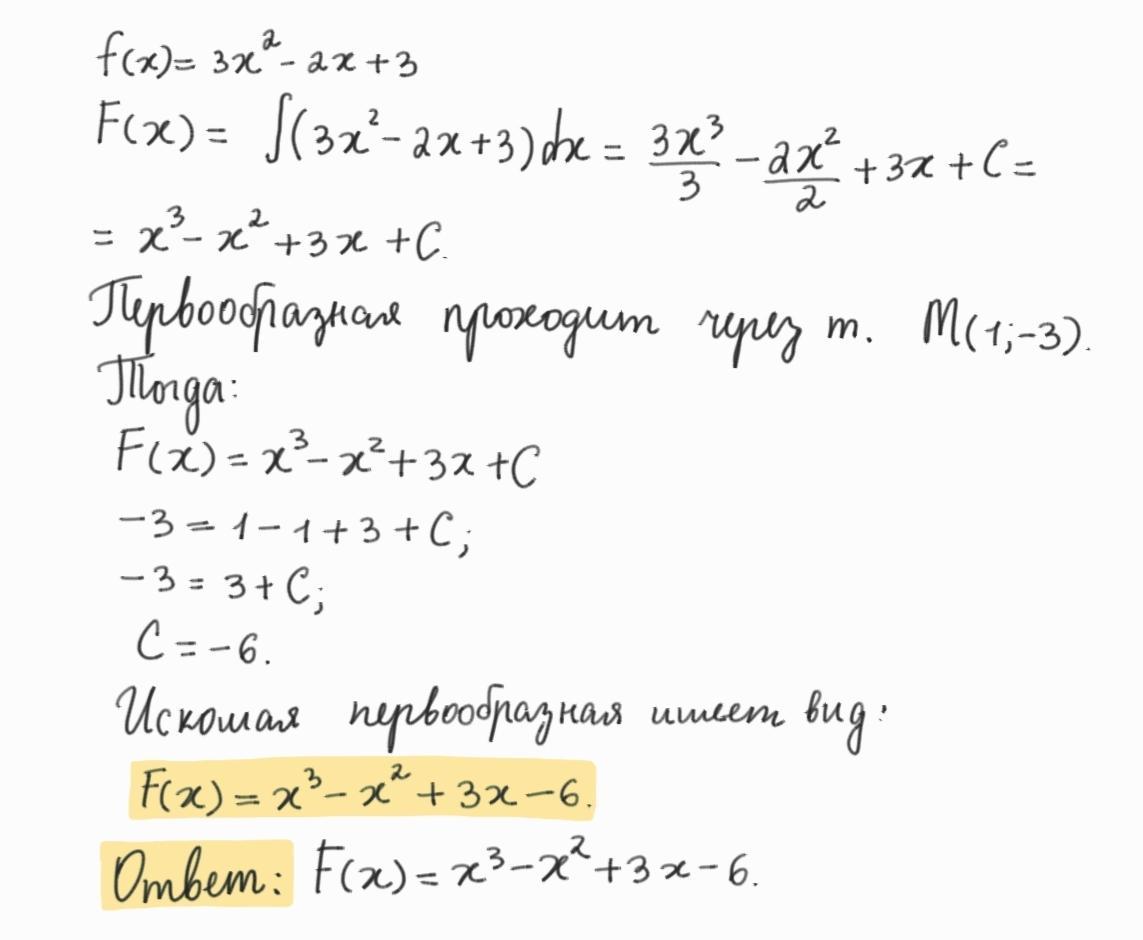 f(x)= 3x²- 2x+3
F(x)= ∫(3x²-2x+3)dx = 3x³/3 - 2x²/2 +3x+C=
= x³- x²+3x+C.
Первообразная проходит через т. M(1;-3).
Тогда:
F(x)=x³-x²+3x+C
-3=1-1+3+C;
-3=3+C;
C=-6.
Искомая первообразная имеет вид:
F(x)=x³-x²+3x-6.
Ответ: F(x)=x³-x²+3x-6.